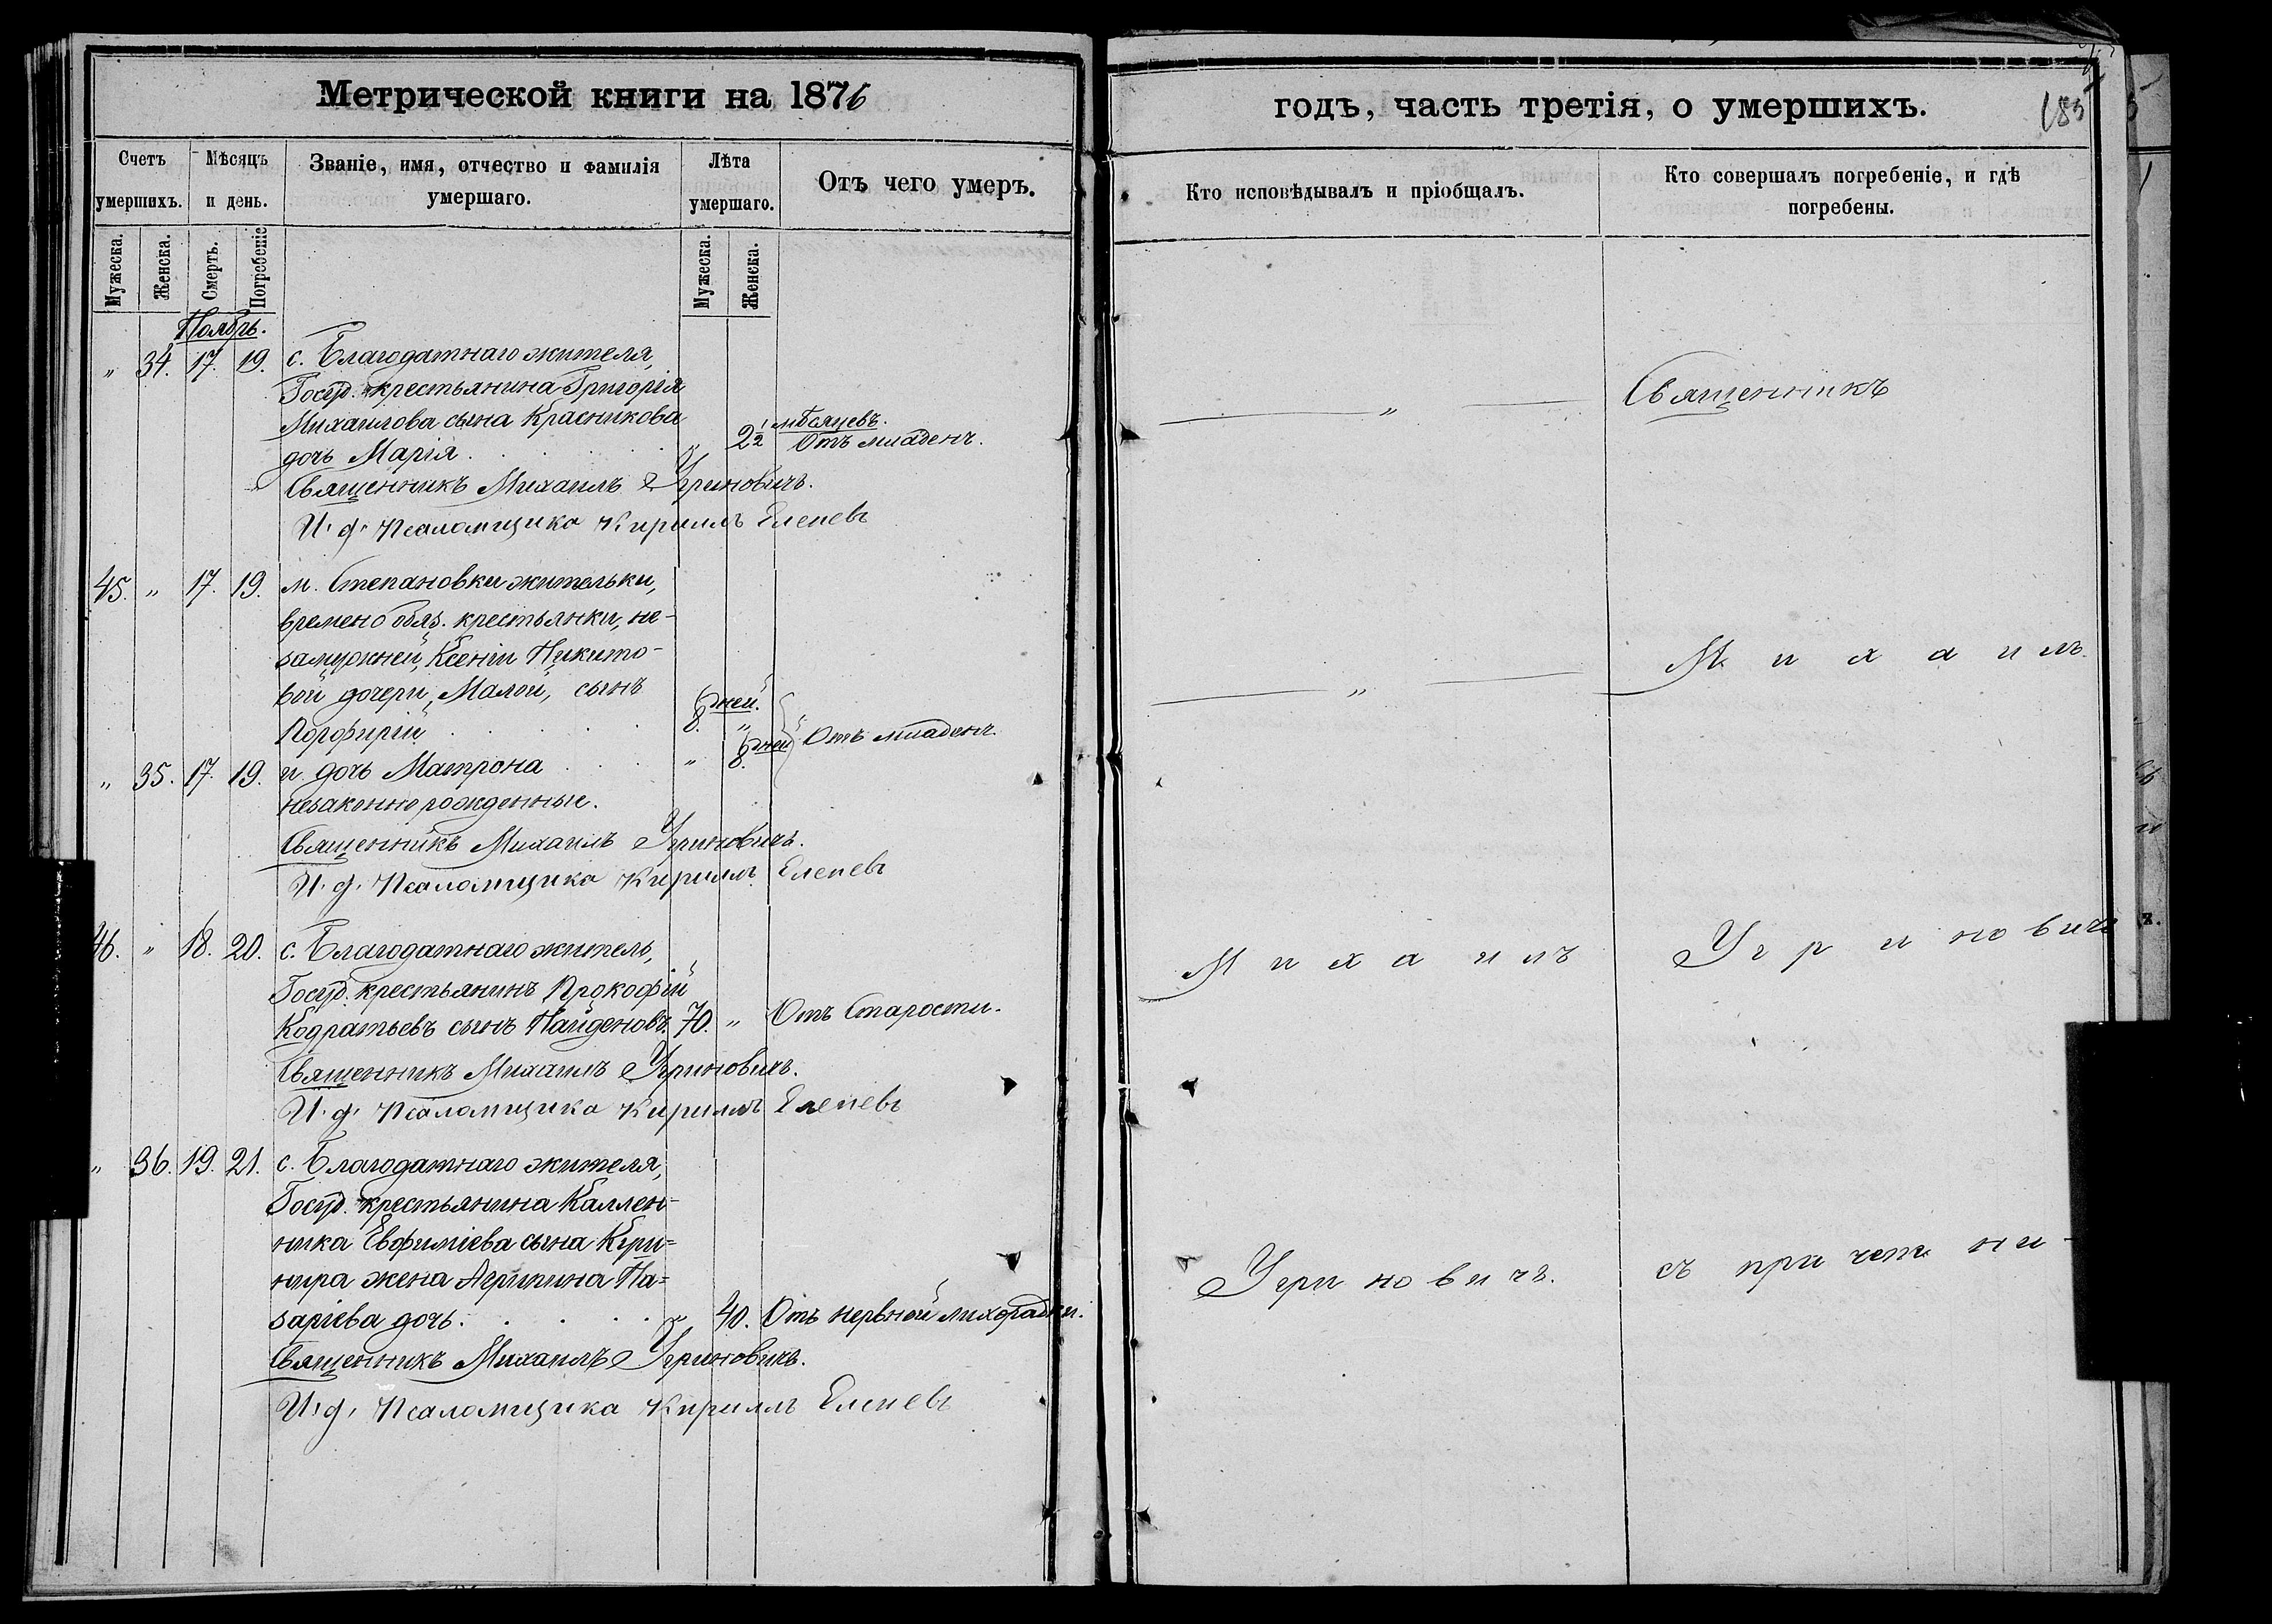 Метрической книги на 1876
Счетъ умершихъ.
Мѣсяцъ и день.
Званіе, имя, отчество и фамилія умершаго.
Лѣта умершаго.
Отъ чего умеръ.
Мужеска.
Женска.
Смерть.
Погребеніе
Мужеска.
Женска.
Ноябрь.
„ 34. 17. 19. с. Благодатнаго жителя,
Госуд. крестьянина Григорія
Михаилова сына Красникова
мѣсяцевъ.
дочь Марія . . . „ 2 1/2 Отъ младенч.
Священникъ Михаилъ Угриновичъ.
И. д. Псаломщика Кириллъ Елепевъ
45. „ 17. 19. м. Степановки жительки,
временообяз. крестьянки, не-
замужней, Ксеніи Никито-
вой дочери, Малой, сынъ
дней.
Порфирій . . . 8. „
дней
Отъ младенч.
„ 35. 17. 19. и дочь Матрона . . . „ 8.
незаконнорожденные.
Священникъ Михаилъ Угриновичъ.
И. д. Псаломщика Кириллъ Елепевъ
46. „ 18. 20. с. Благодатнаго житель,
Госуд. крестьянинъ Прокофій
Кодратьевъ сынъ Найденовъ. 70. „ Отъ Старости.
Священникъ Михаилъ Угриновичъ.
И. д. Псаломщика Кириллъ Елепевъ
„ 36. 19. 21. с. Благодатнаго жителя,
Госуд. крестьянина Каллен-
ника Евфиміева сына Куш=
нира жена Агрипина На=
заріева дочь. . . . „ 40. Отъ нервной лихорадки.
Священникъ Михаилъ Угриновичъ.
И. д. Псаломщика Кириллъ Елепевъ
годъ, часть третія, о умершихъ.
185
Кто исповѣдывалъ и пріобщалъ.
Кто совершалъ погребеніе, и гдѣ погребены.
„ Священникъ
„ Михаилъ
Михаилъ Угриновичъ
Угриновичъ. съ причетни-